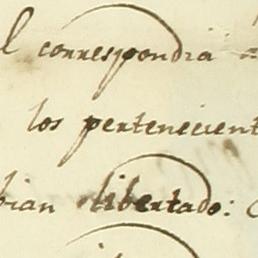 l correspondia
los pertenecient
bian libertado: